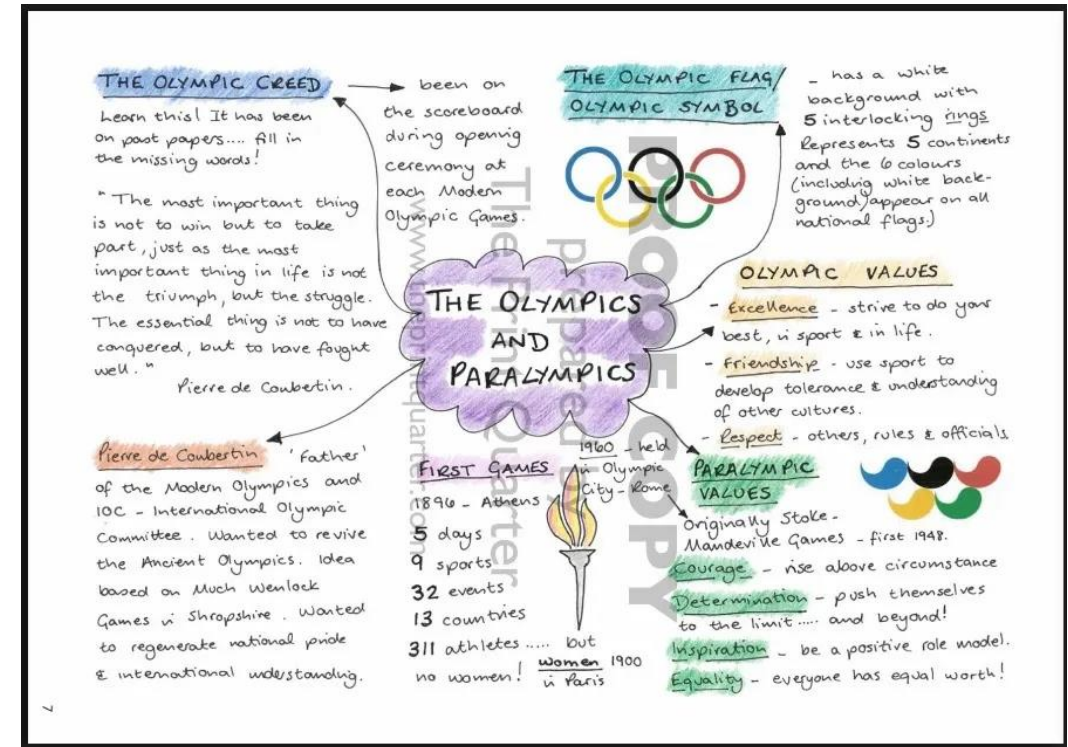 THE OLYMPIC CREED
Learn this! It has been
on past papers.... fill in
the missing words!
"The most important thing
is not to win but to take
part, just as the most
important thing in life is not
the triumph, but the struggle.
The essential thing is not to have
conquered, but to have fought
well."
Pierre de Coubertin.
been on
the scoreboard
during opening
ceremony at
each Modern
Olympic Games.
THE OLYMPIC FLAG/
OLYMPIC SYMBOL
- has a white
background with
5 interlocking rings
Represents 5 continents
and the 6 colours
(including white back-
ground) appear on all
national flags.)
THE OLYMPICS
AND
PARALYMPICS
OLYMPIC VALUES
- Excellence - strive to do your
best, in sport & in life.
- Friendship - use sport to
develop tolerance & understanding
of other cultures.
- Respect - others, rules & officials
Pierre de Coubertin 'Father'
of the Modern Olympics and
IOC - International Olympic
Committee. Wanted to revive
the Ancient Olympics. Idea
based on Much Wenlock
Games in Shropshire. Wanted
to regenerate national pride
& international understanding.
FIRST GAMES
1896 - Athens
5 days
9 sports
32 events
13 countries
311 athletes ..... but
no women! women 1900
in Paris
1960 - held
in Olympic
City - Rome
PARALYMPIC
VALUES
Originally Stoke-
Mandeville Games - first 1948.
Courage - rise above circumstance
Determination - push themselves
to the limit ..... and beyond!
Inspiration - be a positive role model.
Equality - everyone has equal worth!
7
PROOF COPY
prepared by
The Print Quarter
www.theprintquarter.com